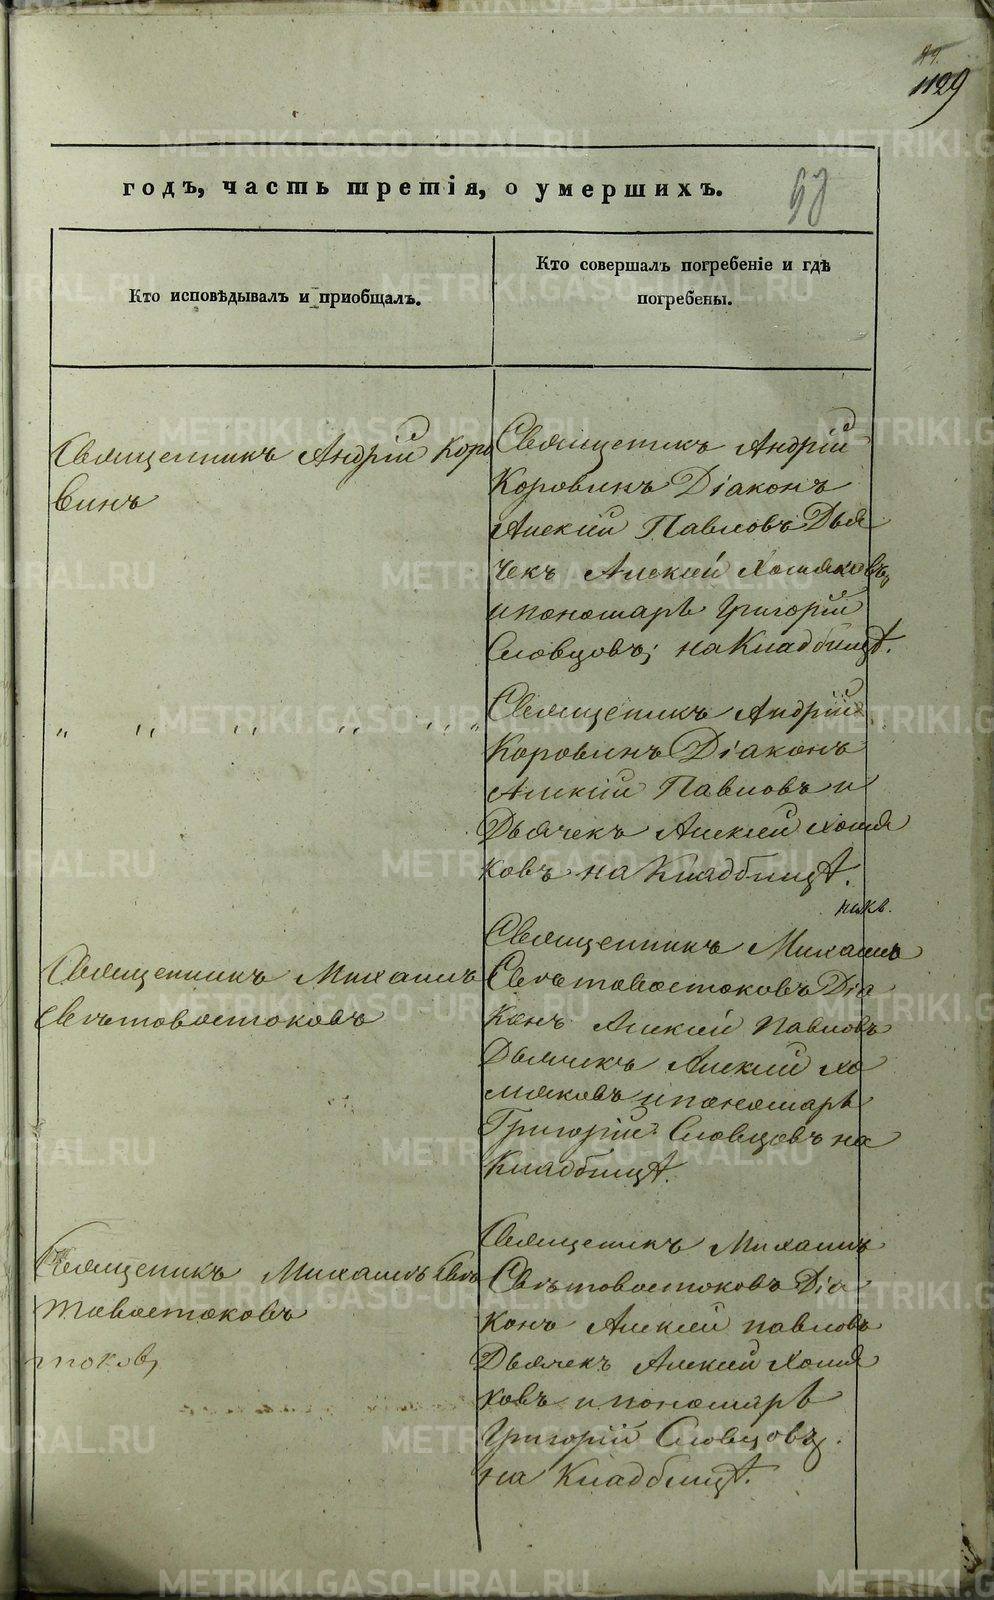 1129
годъ, часть третія, о умершихъ.
Кто исповѣдывалъ и приобщалъ.
Кто совершалъ погребеніе и гдѣ
погребены.
Священникъ Андрій Коро
винъ
Священикъ Андрій
Коровинъ Діаконъ
Алекій Павловъ Дья
чекъ Алексей Хомяковъ,
и пономарь Григорій
Словцовъ; на Кладбищѣ.
„ „ „ „ „ „
Священикъ Андрій
Коровинъ Діаконъ
Алекій Павловъ и
Дьячекъ Алексей Хомя
ковъ на Кладбищѣ.
Священникъ Михаилъ
Свѣтовостоковъ
Священникъ Михаилъ
Свѣтовостоковъ Діа
конъ Алексей Павловъ
Дьячекъ Алексей Хо
мяковъ и пономарь
Григорій Словцовъ на
Кладбищѣ.
Священикъ Михаилъ Свѣ
товостоковъ
токов,
Священикъ Михаилъ
Свѣтовостоковъ Діа
конъ Алексей павловъ
Дьячекъ Алексей Хомя
ковъ и пономарь
Григорій Словцовъ.
на Кладбищѣ.
METRIKI.GASO-URAL.RU